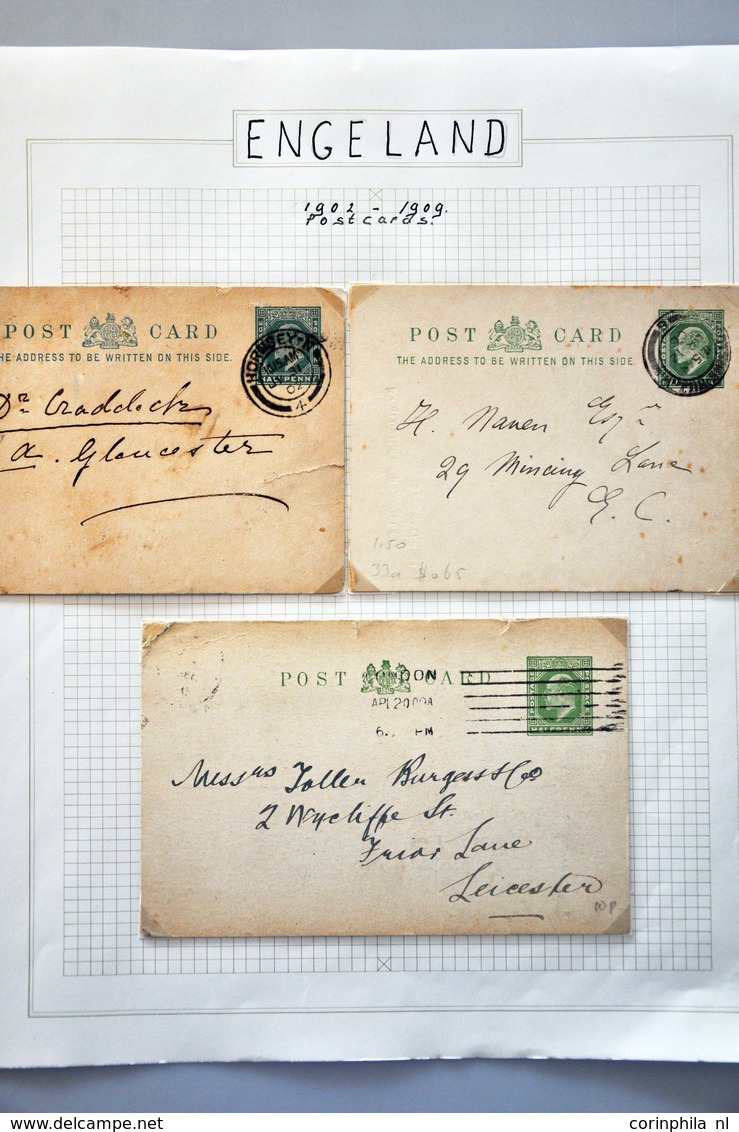 ENGELAND
1902 - 1909.
Postcards.
POST CARD
THE ADDRESS TO BE WRITTEN ON THIS SIDE.
HORNSEY
10.15 AM
02
4
HALFPENNY
Dr Craddock
a. Gloucester
POST CARD
THE ADDRESS TO BE WRITTEN ON THIS SIDE.
H. Naven Esqr
29 Mincing Lane
E. C.
1.50
33a
POST CARD
HALFPENNY
AP 20 09
6. PM
Messrs Toller Burgess & Co
2 Wycliffe St.
Friar Lane
Leicester
www.delcampe.net
corinphila nl